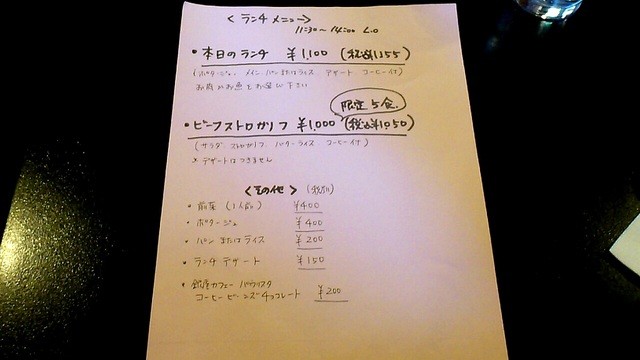 < ランチ メニュー >
11:30〜14:00 L.O
• 本日のランチ ¥1,100 (税込¥1,155)
(ポタージュ、メイン、パンまたはライス デザート コーヒー付)
お肉かお魚をお選び下さい
限定5食
• ビーフストロガノフ ¥1,000 (税込¥1,050)
(サラダ、ストロガノフ、バターライス コーヒー付)
※デザートはつきません
<その他> (税別)
• 前菜 (1人前) ¥400
• ポタージュ ¥400
• パンまたはライス ¥200
• ランチデザート ¥150
• 銀座カフェーパウリスタ
コーヒービーンズチョコレート ¥200